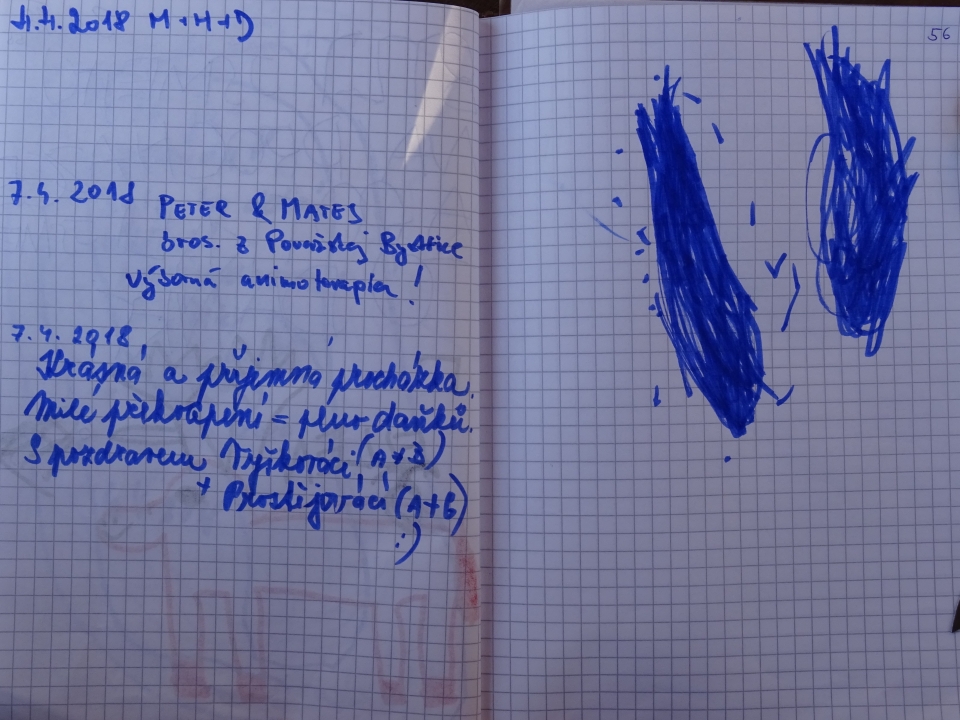 4.4.2018 M+M+D
7.4.2018 PETER & MATES
bros. z Považskej Bystrice
výborná animoterapia!
7.4.2018
Krásná a příjemná procházka.
Milé překvapení = plno daňků.
S pozdravem Vyškováci (A+B)
+ Prostějováci (A+B)
:)
56